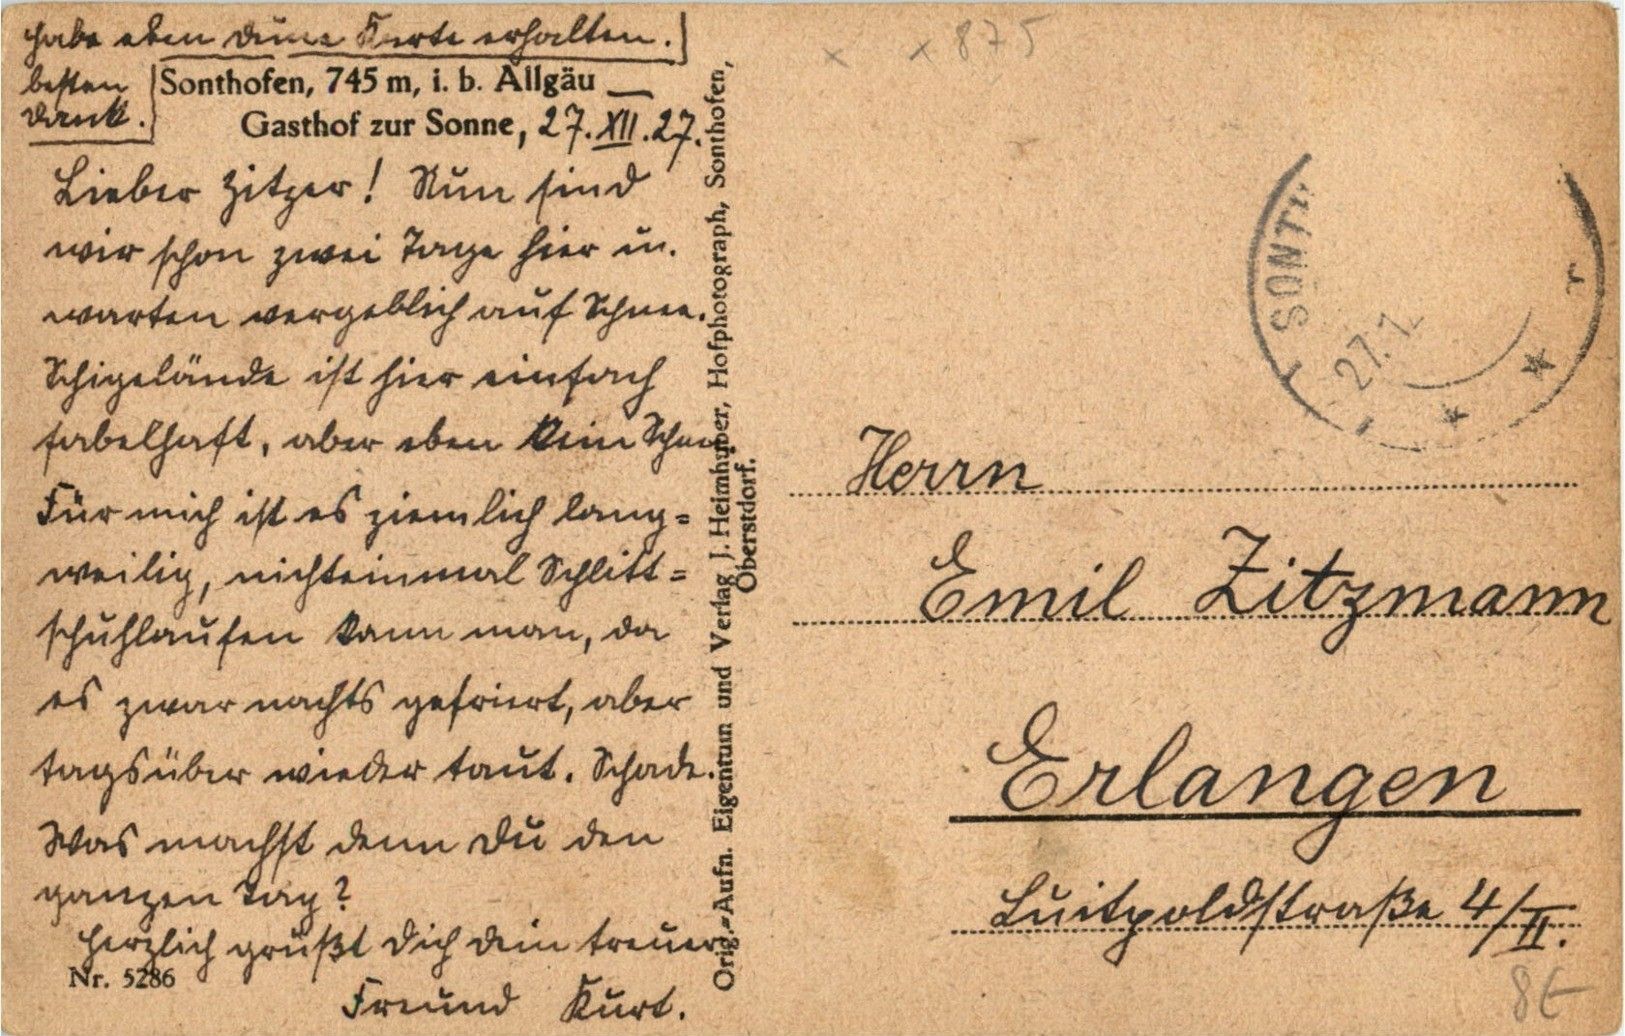 habe eben deine Karte erhalten.
besten
Dank.
Sonthofen, 745 m, i. b. Allgäu
Gasthof zur Sonne, 27. XII. 27.
Lieber Zitzer! Nun sind
wir schon zwei Tage hier u.
warten vergeblich auf Schnee.
Schigelände ist hier einfach
fabelhaft, aber eben kein Schnee
Für mich ist es ziemlich lang=
weilig, nichteinmal Schlitt=
schuhlaufen kann man, da
es zwar nachts gefriert, aber
tagsüber wieder taut. Schade.
Was machst denn Du den
ganzen Tag?
Herzlich grüßt Dich dein treuer
Freund Kurt.
Nr. 5286
Orig.-Aufn. Eigentum und Verlag J. Heimhuber, Hofphotograph, Sonthofen,
Oberstdorf.
x x 875
SONTH
27.1
Herrn
Emil Zitzmann
Erlangen
Luitpoldstraße 4/II.